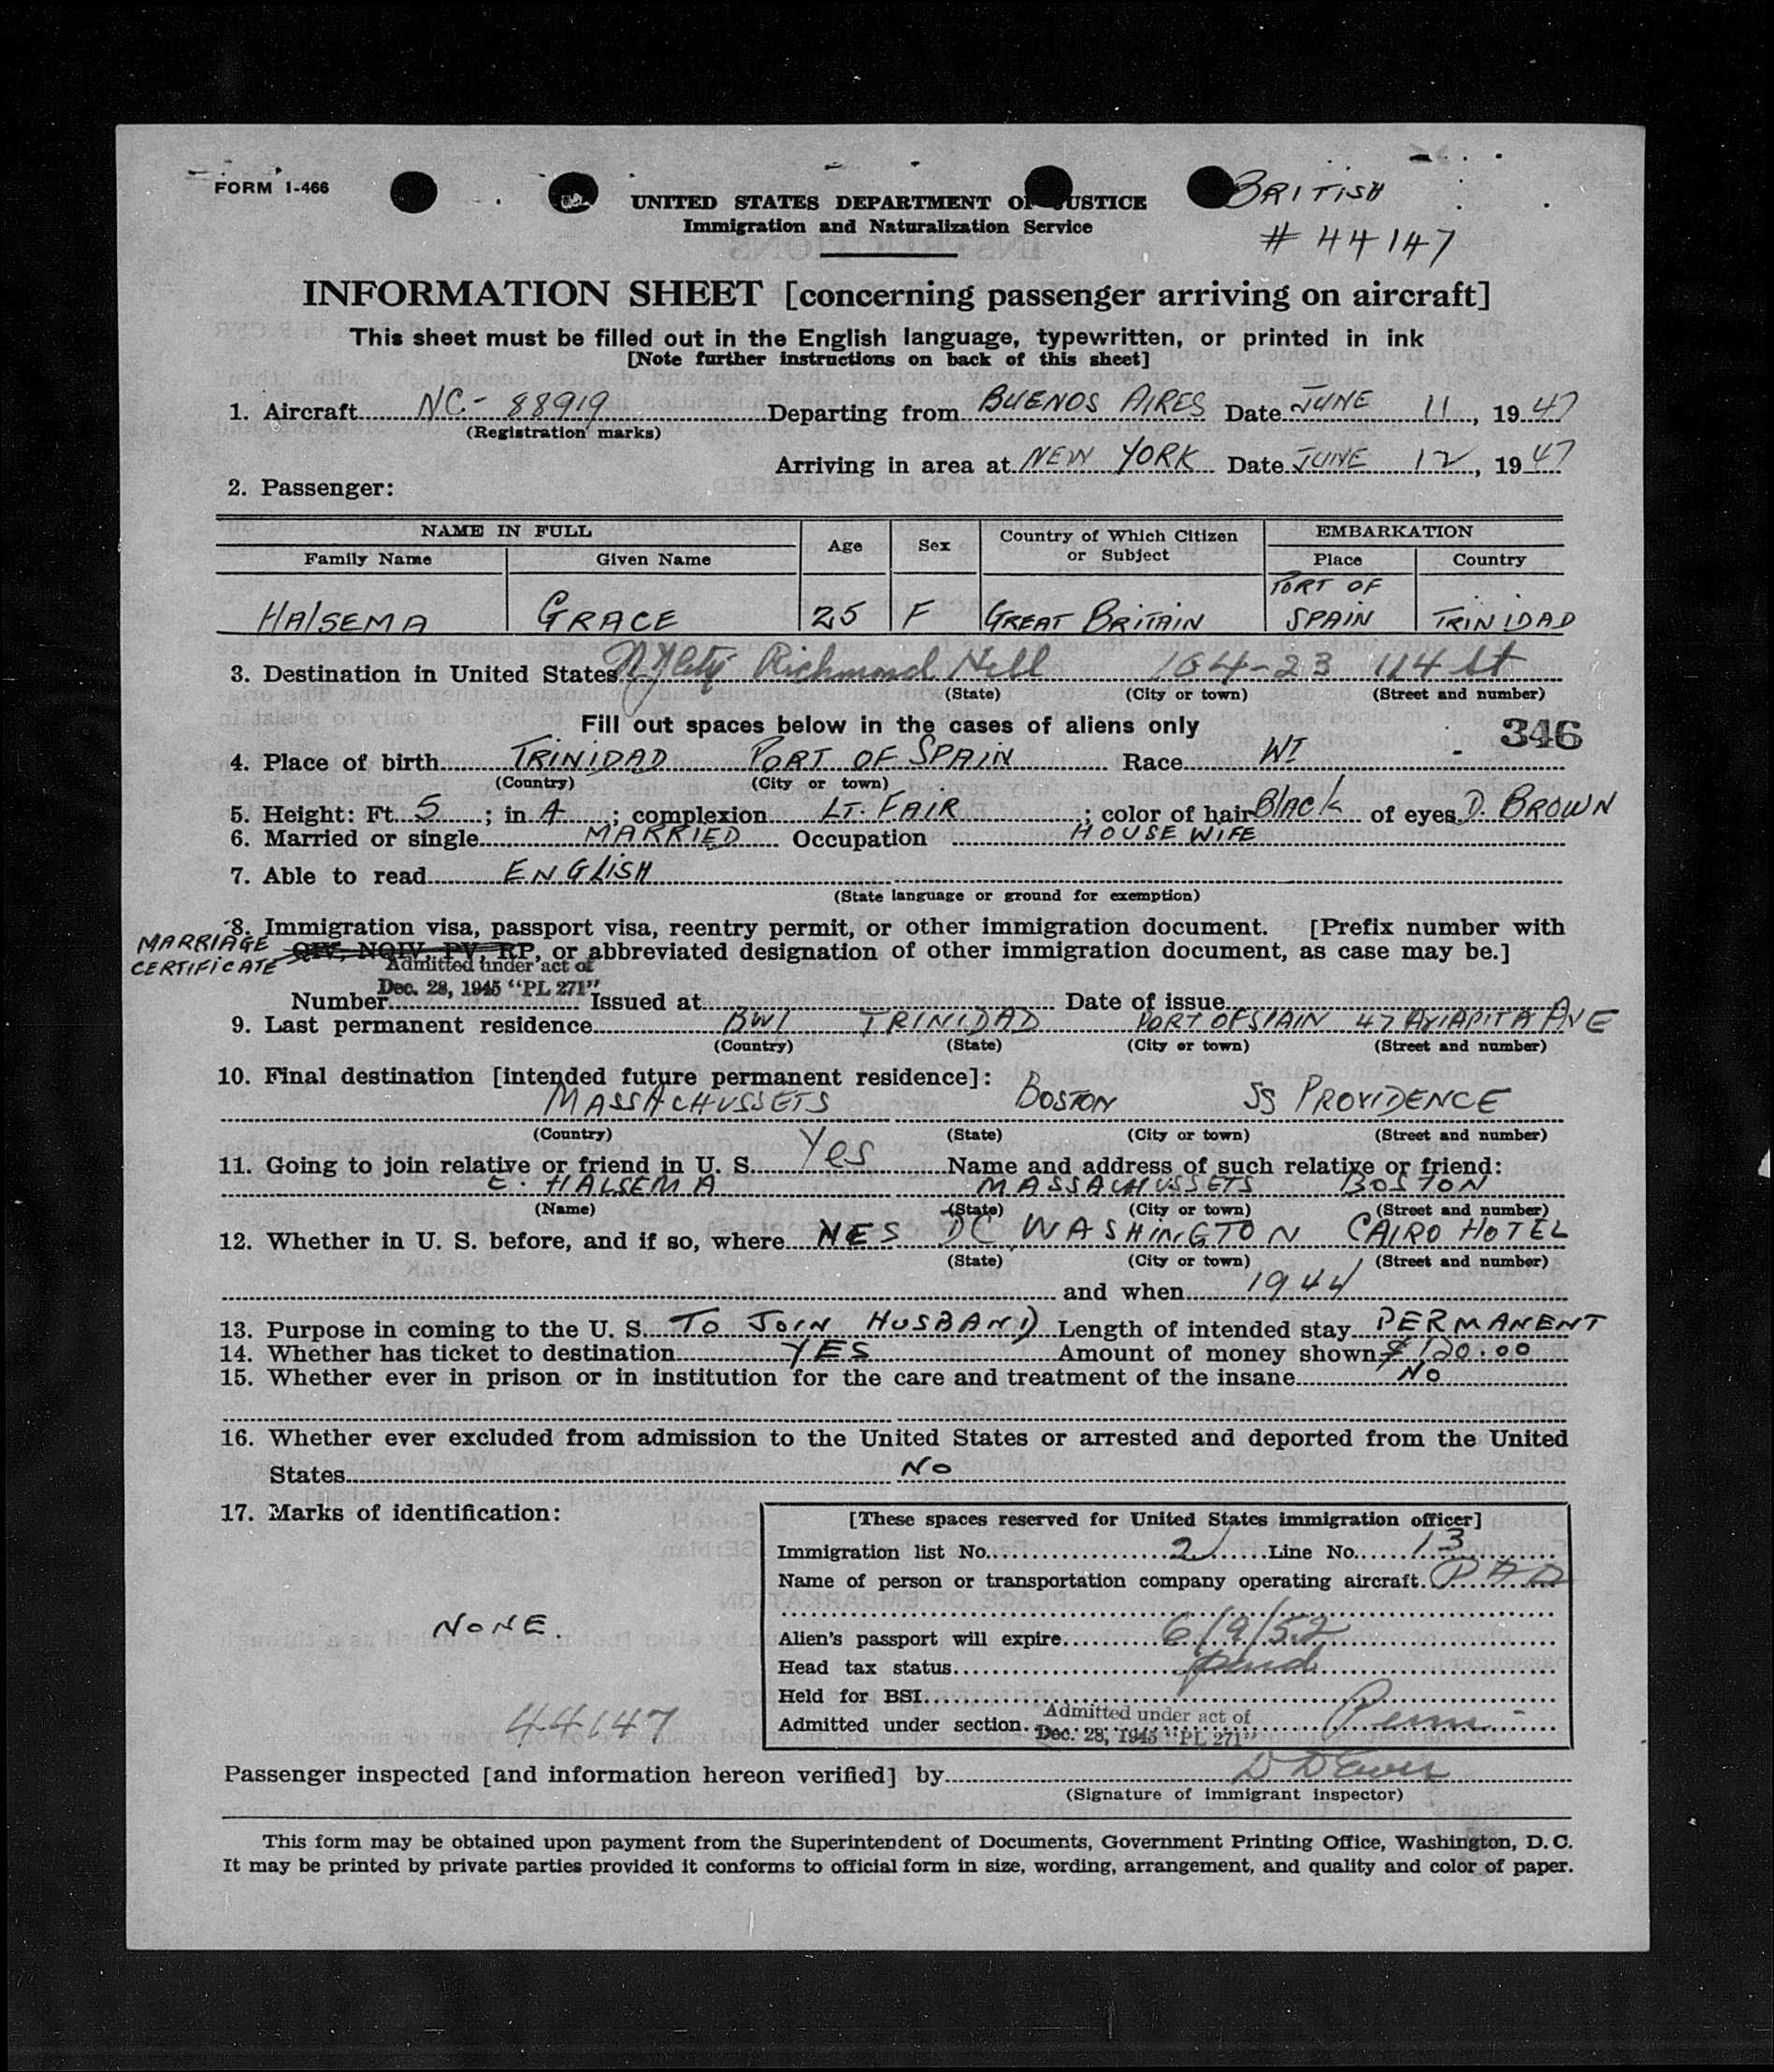 FORM I-466
UNITED STATES DEPARTMENT OF JUSTICE
Immigration and Naturalization Service
BRITISH
# 44147
INFORMATION SHEET [concerning passenger arriving on aircraft]
This sheet must be filled out in the English language, typewritten, or printed in ink
[Note further instructions on back of this sheet]
1. Aircraft NC-88919 Departing from BUENOS AIRES Date JUNE 11, 1947
(Registration marks)
Arriving in area at NEW YORK Date JUNE 12, 1947
2. Passenger:
NAME IN FULL Age Sex Country of Which Citizen or Subject EMBARKATION
Family Name Given Name Place Country
HAlSEMA GRACE 25 F GREAT BRITAIN PORT OF SPAIN TRINIDAD
3. Destination in United States NY City Richmond Hill 104-23 114 St
(State) (City or town) (Street and number)
Fill out spaces below in the cases of aliens only
346
4. Place of birth TRINIDAD PORT OF SPAIN Race WI
(Country) (City or town)
5. Height: Ft. 5; in 4; complexion LT. FAIR; color of hair BlAck of eyes D. BROWN
6. Married or single MARRIED Occupation HOUSE WIFE
7. Able to read ENGLISH
(State language or ground for exemption)
8. Immigration visa, passport visa, reentry permit, or other immigration document. [Prefix number with
MARRIAGE CERTIFICATE QIV, NQIV, PV, RP, or abbreviated designation of other immigration document, as case may be.]
Admitted under act of
Dec. 28, 1945 "PL 271"
Number Issued at Date of issue
9. Last permanent residence BWI TRINIDAD PORT OF SPAIN 47 ARIAPITA AVE
(Country) (State) (City or town) (Street and number)
10. Final destination [intended future permanent residence]:
MASSACHUSSETS BOSTON SS PROVIDENCE
(Country) (State) (City or town) (Street and number)
11. Going to join relative or friend in U. S. Yes Name and address of such relative or friend:
E. HALSEMA MASSACHUSSETS BOSTON
(Name) (State) (City or town) (Street and number)
12. Whether in U. S. before, and if so, where YES DC WASHINGTON CAIRO HOTEL
(State) (City or town) (Street and number)
and when 1944
13. Purpose in coming to the U. S. TO JOIN HUSBAND Length of intended stay PERMANENT
14. Whether has ticket to destination YES Amount of money shown $120.00
15. Whether ever in prison or in institution for the care and treatment of the insane No
16. Whether ever excluded from admission to the United States or arrested and deported from the United
States No
17. Marks of identification:
NONE.
44147
[These spaces reserved for United States immigration officer]
Immigration list No. 2 Line No. 13
Name of person or transportation company operating aircraft. PAA
Alien's passport will expire 6/9/52
Head tax status paid
Held for BSI
Admitted under section. Admitted under act of Dec. 28, 1945 "PL 271" Perm
Passenger inspected [and information hereon verified] by
(Signature of immigrant inspector)
This form may be obtained upon payment from the Superintendent of Documents, Government Printing Office, Washington, D. C.
It may be printed by private parties provided it conforms to official form in size, wording, arrangement, and quality and color of paper.